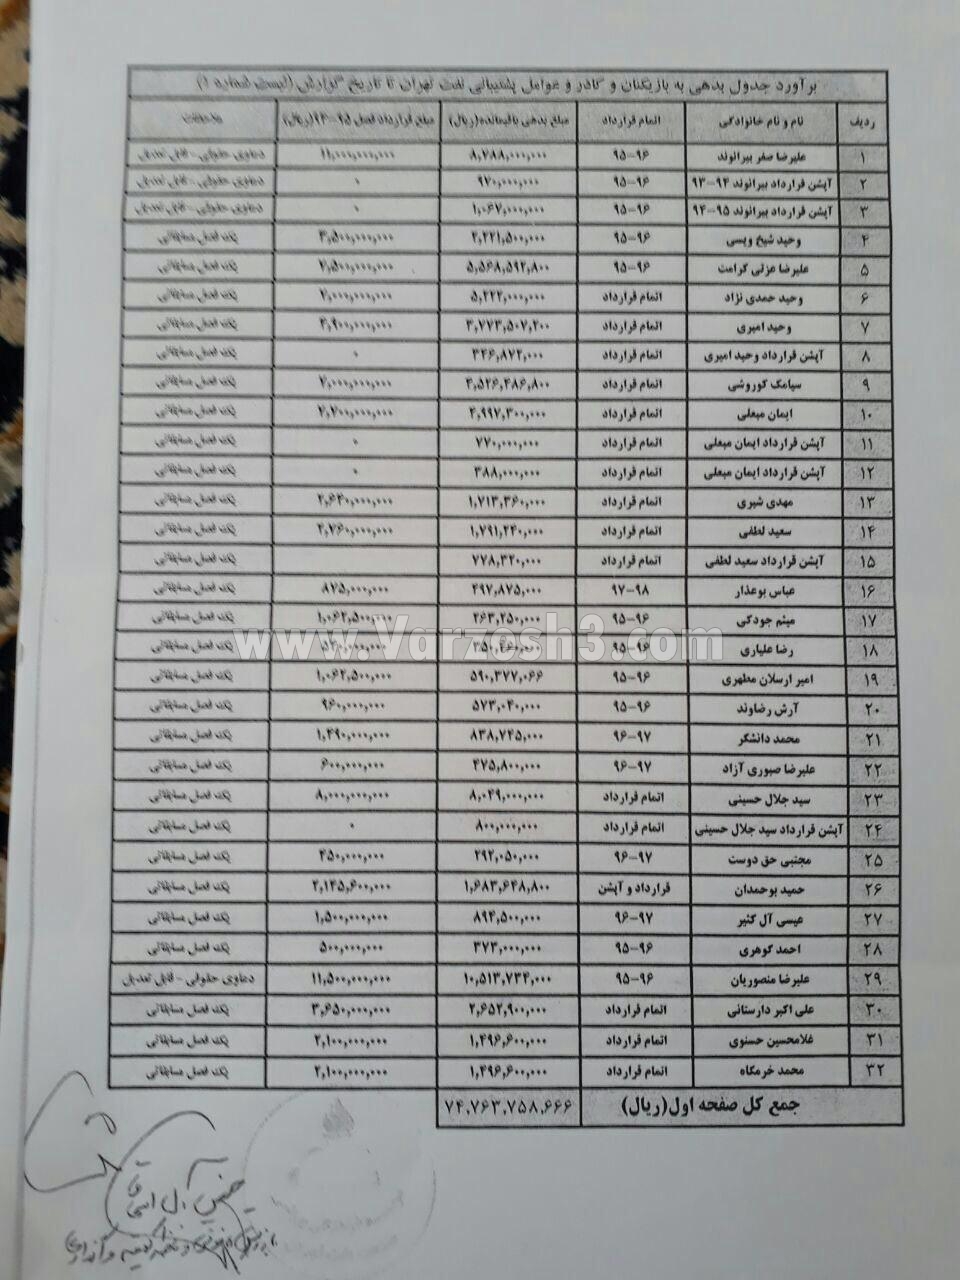 برآورد جدول بدهی به بازیکنان و کادر و عوامل پشتیبانی نفت تهران تا تاریخ گزارش (لیست شماره ۱)
ردیف نام و نام خانوادگی اتمام قرارداد مبلغ بدهی باقیمانده(ریال) مبلغ قرارداد فصل ۹۵-۹۴(ریال) ملاحظات
۱ علیرضا صفر بیرانوند ۹۵-۹۶ ۸,۷۸۸,۰۰۰,۰۰۰ ۱۱,۰۰۰,۰۰۰,۰۰۰ دعاوی حقوقی - قابل تعدیل
۲ آپشن قرارداد بیرانوند ۹۴-۹۳ ۹۵-۹۶ ۹۷۰,۰۰۰,۰۰۰ ۰ دعاوی حقوقی - قابل تعدیل
۳ آپشن قرارداد بیرانوند ۹۵-۹۴ ۹۵-۹۶ ۱,۰۶۷,۰۰۰,۰۰۰ ۰ دعاوی حقوقی - قابل تعدیل
۴ وحید شیخ ویسی ۹۵-۹۶ ۲,۲۲۱,۵۰۰,۰۰۰ ۳,۵۰۰,۰۰۰,۰۰۰ یک فصل مسابقاتی
۵ علیرضا عزتی کرامت ۹۵-۹۶ ۵,۵۶۸,۵۹۲,۸۰۰ ۲,۵۰۰,۰۰۰,۰۰۰ یک فصل مسابقاتی
۶ وحید حمدی نژاد اتمام قرارداد ۵,۲۲۲,۰۰۰,۰۰۰ ۲,۰۰۰,۰۰۰,۰۰۰ یک فصل مسابقاتی
۷ وحید امیری اتمام قرارداد ۳,۷۷۳,۵۰۷,۲۰۰ ۴,۹۰۰,۰۰۰,۰۰۰ یک فصل مسابقاتی
۸ آپشن قرارداد وحید امیری اتمام قرارداد ۳۴۶,۸۷۲,۰۰۰ ۰ یک فصل مسابقاتی
۹ سیامک کوروشی اتمام قرارداد ۴,۵۲۶,۴۸۶,۸۰۰ ۷,۰۰۰,۰۰۰,۰۰۰ یک فصل مسابقاتی
۱۰ ایمان مبعلی اتمام قرارداد ۲,۹۹۷,۳۰۰,۰۰۰ ۲,۲۰۰,۰۰۰,۰۰۰ یک فصل مسابقاتی
۱۱ آپشن قرارداد ایمان مبعلی اتمام قرارداد ۷۷۰,۰۰۰,۰۰۰ ۰ یک فصل مسابقاتی
۱۲ آپشن قرارداد ایمان مبعلی اتمام قرارداد ۳۸۸,۰۰۰,۰۰۰ ۰ یک فصل مسابقاتی
۱۳ مهدی شیری اتمام قرارداد ۱,۷۱۳,۳۶۰,۰۰۰ ۲,۶۴۰,۰۰۰,۰۰۰ یک فصل مسابقاتی
۱۴ سعید لطفی اتمام قرارداد ۱,۷۹۱,۲۴۰,۰۰۰ ۲,۷۶۰,۰۰۰,۰۰۰ یک فصل مسابقاتی
۱۵ آپشن قرارداد سعید لطفی اتمام قرارداد ۷۷۸,۳۲۰,۰۰۰ یک فصل مسابقاتی
۱۶ عباس بوعذار ۹۷-۹۸ ۴۹۷,۸۷۵,۰۰۰ ۸۷۵,۰۰۰,۰۰۰ یک فصل مسابقاتی
۱۷ میثم جودکی ۹۵-۹۶ ۲۶۳,۲۵۰,۰۰۰ ۱,۰۶۲,۵۰۰,۰۰۰ یک فصل مسابقاتی
www.Varzesh3.com
۱۸ رضا علیاری ۹۵-۹۶ ۳۵۰,۴۶۰,۰۰۰ ۵۲۰,۰۰۰,۰۰۰ یک فصل مسابقاتی
۱۹ امیر ارسلان مطهری ۹۵-۹۶ ۵۹۰,۳۷۷,۰۶۶ ۱,۰۶۲,۵۰۰,۰۰۰ یک فصل مسابقاتی
۲۰ آرش رضاوند ۹۵-۹۶ ۵۷۳,۰۴۰,۰۰۰ ۹۶۰,۰۰۰,۰۰۰ یک فصل مسابقاتی
۲۱ محمد دانشگر ۹۶-۹۷ ۸۳۸,۷۴۵,۰۰۰ ۱,۴۹۰,۰۰۰,۰۰۰ یک فصل مسابقاتی
۲۲ علیرضا صبوری آزاد ۹۶-۹۷ ۴۷۵,۸۰۰,۰۰۰ ۶۰۰,۰۰۰,۰۰۰ یک فصل مسابقاتی
۲۳ سید جلال حسینی اتمام قرارداد ۸,۰۴۹,۰۰۰,۰۰۰ ۸,۰۰۰,۰۰۰,۰۰۰ یک فصل مسابقاتی
۲۴ آپشن قرارداد سید جلال حسینی اتمام قرارداد ۸۰۰,۰۰۰,۰۰۰ ۰ یک فصل مسابقاتی
۲۵ مجتبی حق دوست ۹۶-۹۷ ۲۹۲,۰۵۰,۰۰۰ ۴۵۰,۰۰۰,۰۰۰ یک فصل مسابقاتی
۲۶ حمید بوحمدان قرارداد و آپشن ۱,۶۸۳,۶۴۸,۸۰۰ ۲,۱۴۵,۶۰۰,۰۰۰ یک فصل مسابقاتی
۲۷ عیسی آل کثیر ۹۶-۹۷ ۸۹۴,۵۰۰,۰۰۰ ۱,۵۰۰,۰۰۰,۰۰۰ یک فصل مسابقاتی
۲۸ احمد گوهری ۹۵-۹۶ ۳۷۳,۰۰۰,۰۰۰ ۵۰۰,۰۰۰,۰۰۰ یک فصل مسابقاتی
۲۹ علیرضا منصوریان ۹۵-۹۶ ۱۰,۵۱۳,۷۳۴,۰۰۰ ۱۱,۵۰۰,۰۰۰,۰۰۰ دعاوی حقوقی - قابل تعدیل
۳۰ علی اکبر دارستانی اتمام قرارداد ۲,۶۵۲,۹۰۰,۰۰۰ ۳,۶۵۰,۰۰۰,۰۰۰ یک فصل مسابقاتی
۳۱ غلامحسین حسنوی اتمام قرارداد ۱,۴۹۶,۶۰۰,۰۰۰ ۲,۱۰۰,۰۰۰,۰۰۰ یک فصل مسابقاتی
۳۲ محمد خرمگاه اتمام قرارداد ۱,۴۹۶,۶۰۰,۰۰۰ ۲,۱۰۰,۰۰۰,۰۰۰ یک فصل مسابقاتی
جمع کل صفحه اول(ریال) ۷۴,۷۶۳,۷۵۸,۶۶۶